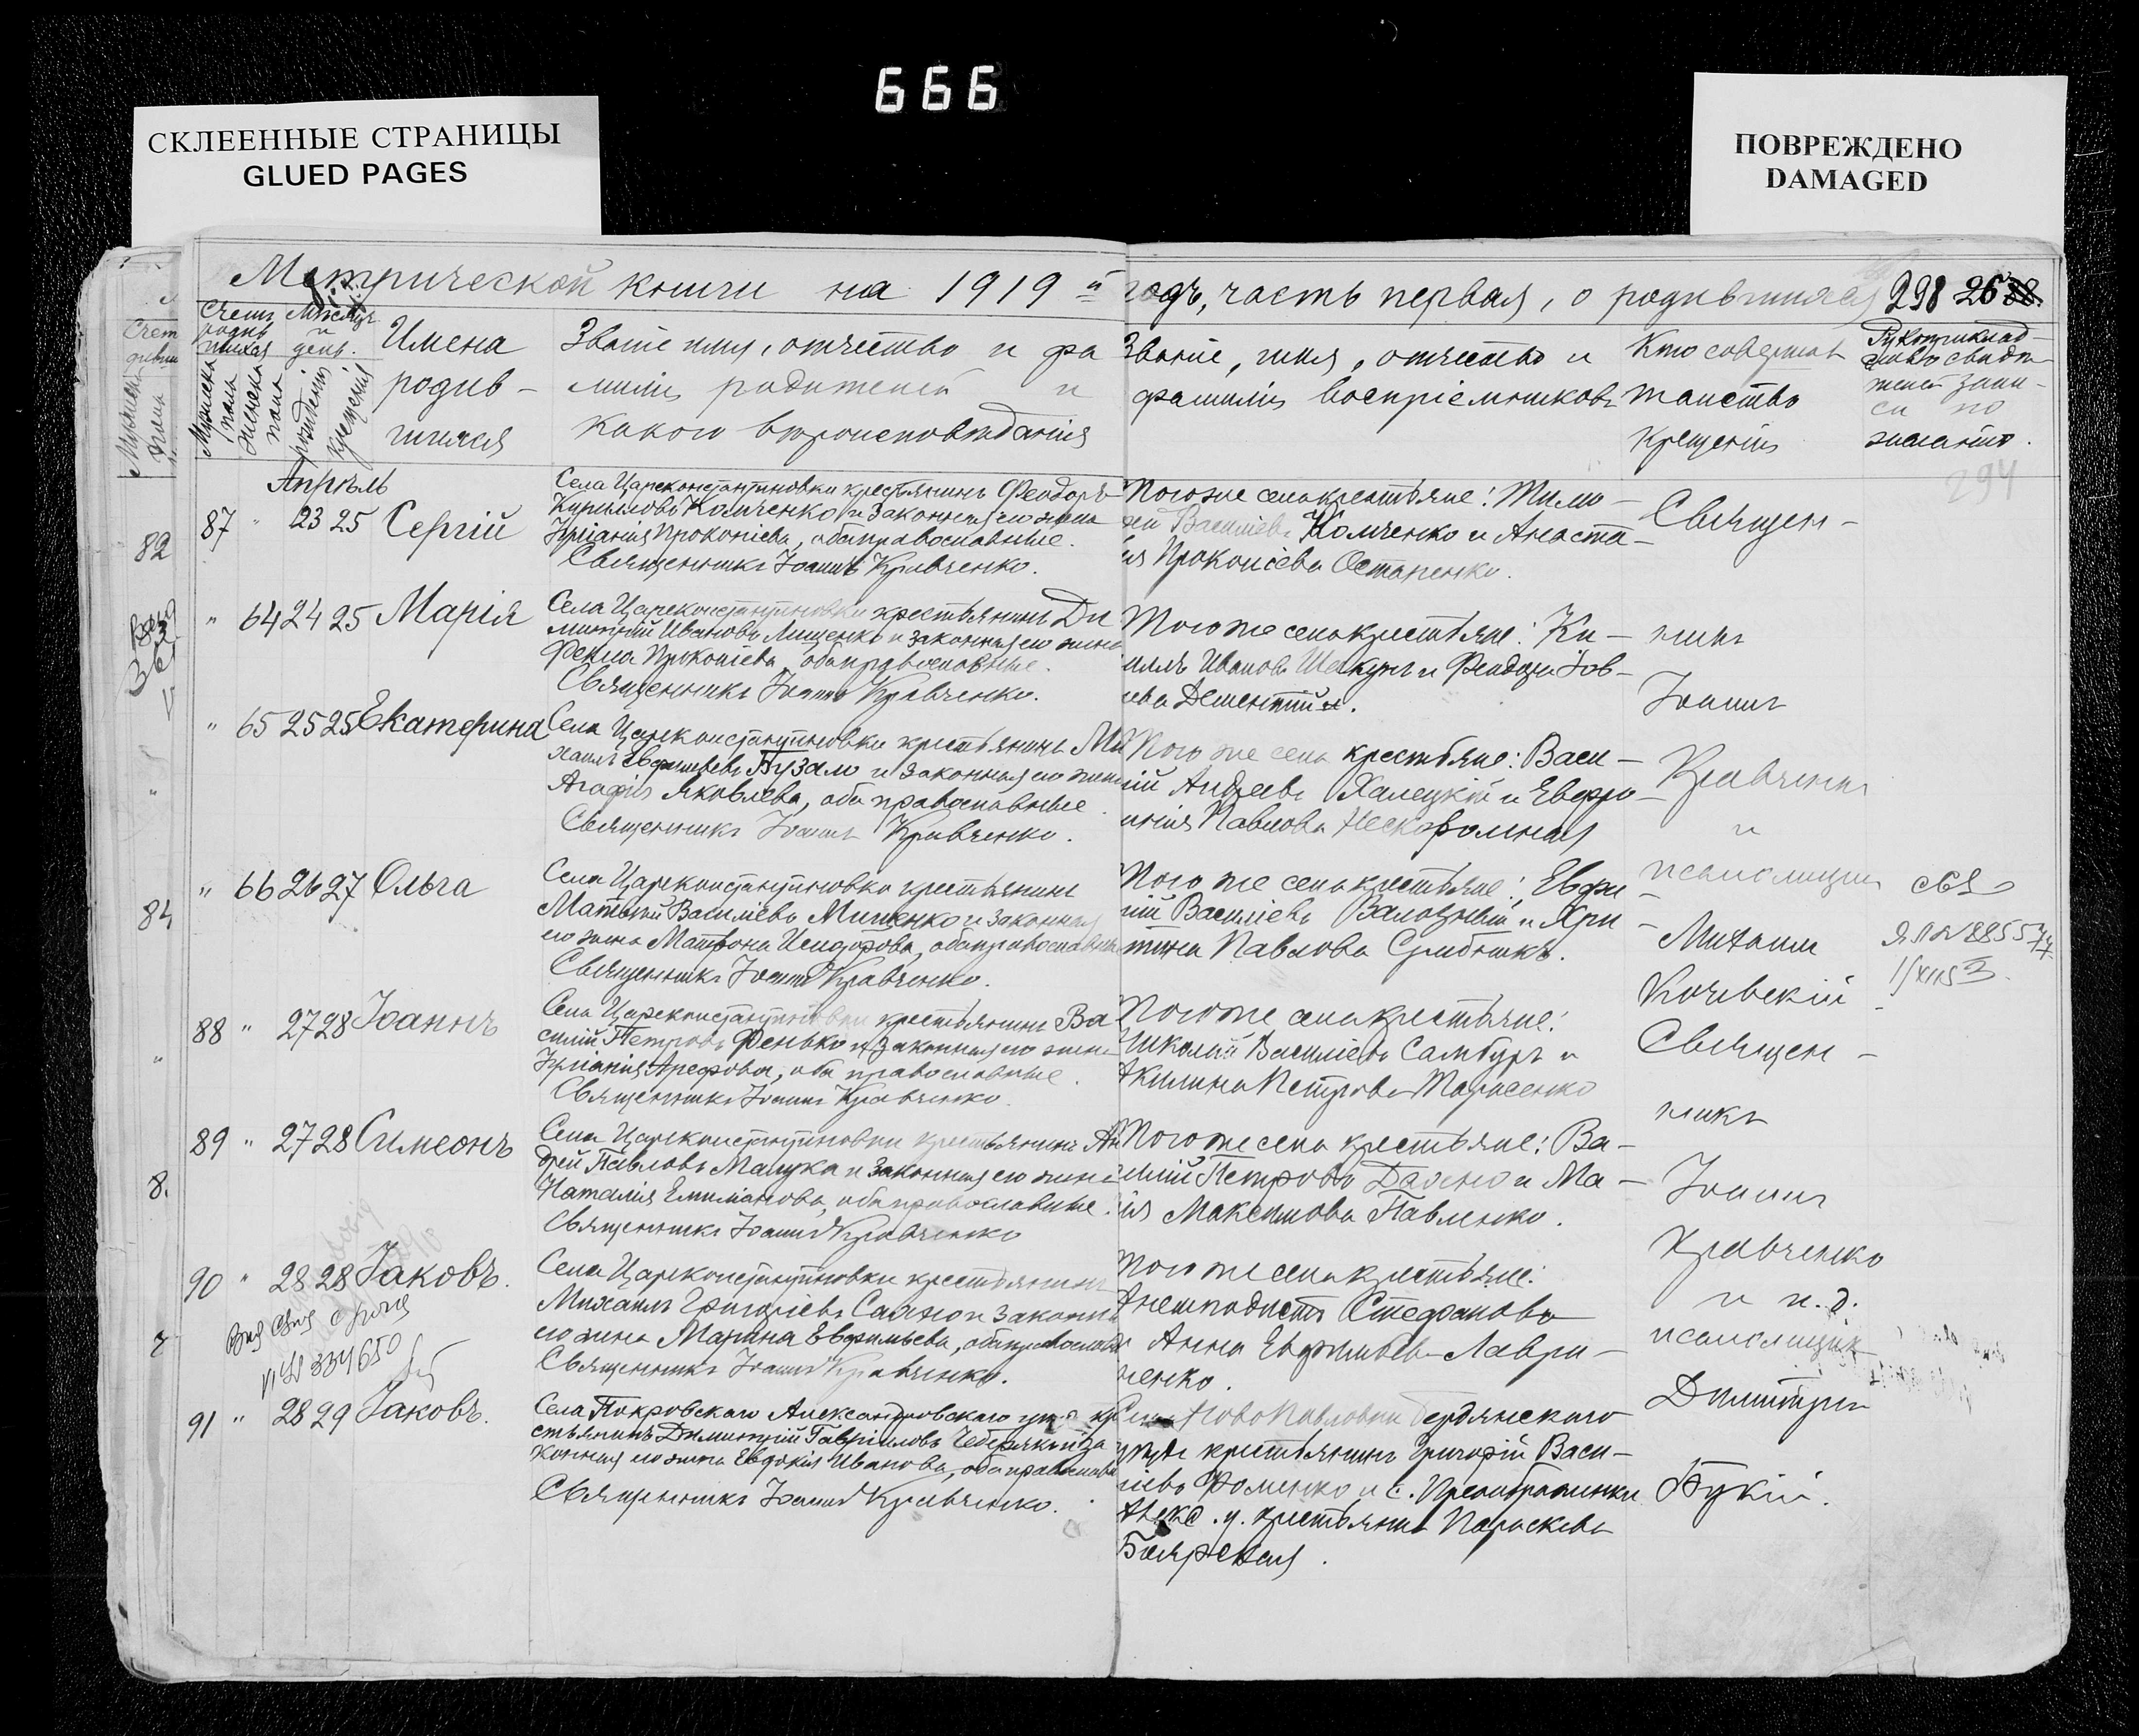 666
СКЛЕЕННЫЕ СТРАНИЦЫ
GLUED PAGES
ПОВРЕЖДЕНО
DAMAGED
Метрической книги на 1919 й годъ, часть первая, о родившихся 298 26
Счетъ родившихся
Мѣсяцъ и день.
Мужеска пола
Женска пола
рожденія
крещенія
Имена
родив-
шихся
Званіе имя, отчество и фа
милія родителей и
какого вѣроисповѣданія
Званіе, имя, отчество и
фамилія воспріемниковъ
Кто совершалъ
таинство
крещенія
Рукоприклад-
ство свидѣ-
телей запи-
си по
желанію.
294
Апрѣль
87 " 23 25 Сергій
Села Цареконстантиновки крестьянинъ Феодоръ
Кирилловъ Компченко и законная его жена
Ириanія Прокопіева, оба православные.
Священникъ Іоаннъ Кравченко.
Того же села крестьяне: Тимо-
Васильевъ Компченко и Анаста-
ія Прокопіева Остапенко.
Священ-
82
" 64 24 25 Марія
Села Цареконстантиновки крестьянинъ Ди
митрій Ивановъ Лищенко и законная его жена
Фекла Прокопіева, оба православные.
Священникъ Іоаннъ Кравченко.
Того же села крестьяне: Ки-
иллъ Ивановъ Шекунъ и Феодора Іов-
ева Дементій.
никъ
Іоаннъ
" 65 25 25 Екатерина
Села Цареконстантиновки крестьянинъ Ми
хаилъ Евфиміевъ Бузало и законная его жена
Агафія Яковлева, оба православные.
Священникъ Іоаннъ Кравченко.
Того же села крестьяне: Васи-
ій Андреевъ Халецкій и Евфро-
инія Павлова Нескоромная
Кравченко
и
" 66 26 27 Ольга
Села Цареконстантиновки крестьянинъ
Матвѣй Васильевъ Мищенко и законная
его жена Матрона Исидорова, оба православные
Священникъ Іоаннъ Кравченко.
Того же села крестьяне: Евфи-
ій Васильевъ Валовый и Хри-
тина Павлова
псаломщикъ
Михаилъ
Кочевскій
84
88 " 27 28 Іоаннъ
Села Цареконстантиновки крестьянинъ Ва
силій Петровъ Фенько и законная его жена
Арефова, оба православные.
Священникъ Іоаннъ Кравченко
Того же села крестьяне:
Николай Васильевъ Самбуръ и
Акилина Петрова Тарасенко
Священ-
никъ
89 " 27 28 Симеонъ
Села Цареконстантиновки крестьянинъ Ан
дрей Павловъ Мацука и законная его жена
Наталія Емиліанова, оба православные.
Священникъ Іоаннъ Кравченко
Того же села крестьяне: Ва-
силій Петровъ Дахно и Ма-
ія Максимова Павленко.
Іоаннъ
8.
90 " 28 28 Іаковъ.
Села Цареконстантиновки крестьянинъ
Михаилъ Григоріевъ Сахно и законная
его жена Марина Евфиміева, оба православные
Священникъ Іоаннъ Кравченко.
Того же села крестьяне:
Анемподистъ Стефановъ
и Анна Евфиміева Лаври-
ненко.
Кравченко
и и. д.
псаломщика
334650
91 " 28 29 Іаковъ.
Села Покровскаго Александровскаго уѣзда кре
стьянинъ Димитрій Гавріиловъ и за
конная его жена Евдокія Иванова, оба православные
Священникъ Іоаннъ Кравченко.
Села НовоПавловки Бердянскаго
уѣзда крестьянинъ Григорій Васи-
ліевъ Фоменко и с. Преображенки
Алекс. у. крестьянка Параскева
Боярская.
Димитрій
Букій.